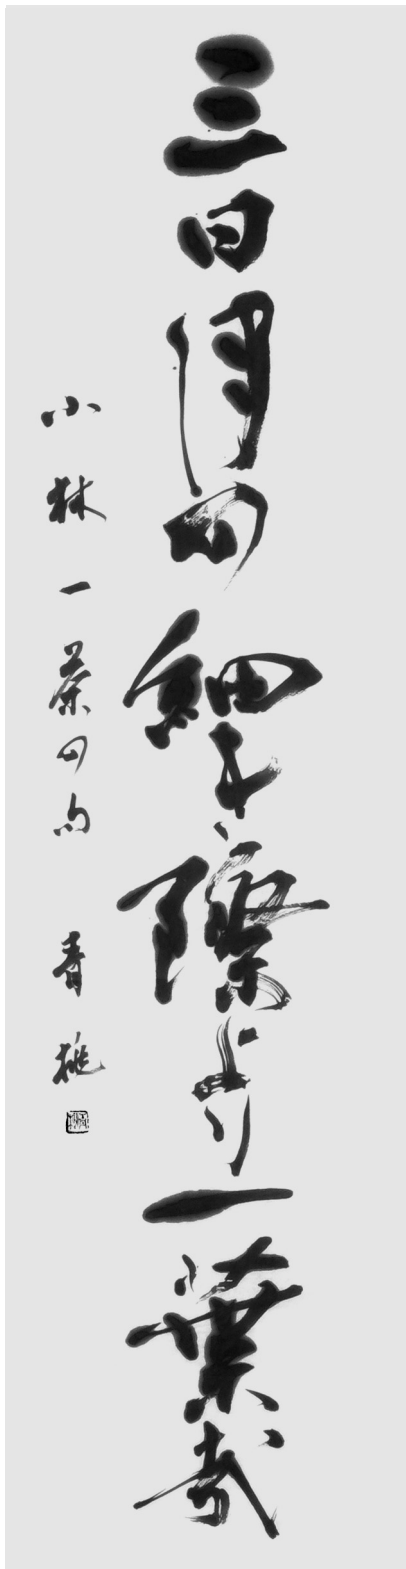 三日月の細き際より一葉哉
小林一茶の句 青桃